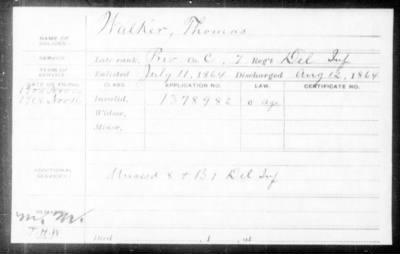 Walker, Thomas
NAME OF
SOLDIER:
SERVICE: Late rank, Priv Co. C, 7 Reg't Del Inf
TERM OF
SERVICE: Enlisted July 11, 1864 Discharged Aug 12, 1864
DATE OF FILING. CLASS. APPLICATION NO. LAW. CERTIFICATE NO.
Invalid, 1378982 o age
Widow,
Minor,
ADDITIONAL
SERVICES: & Del Inf
T.H.W
Died , 1 , at